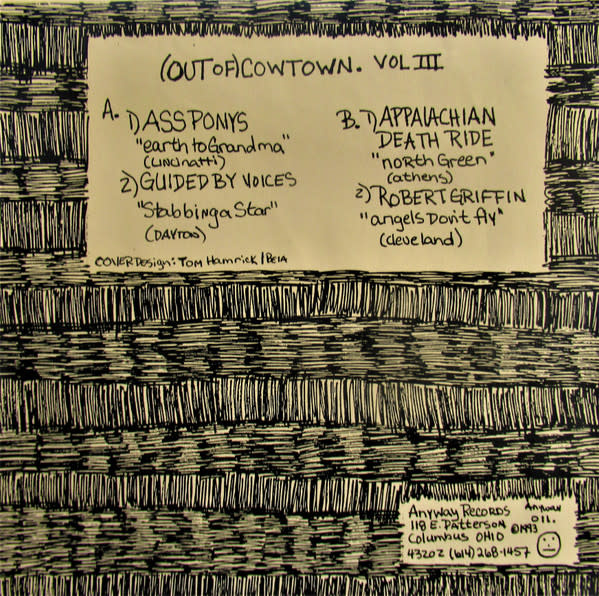 (OUT OF) COWTOWN. VOL III
A. 1) ASS PONYS
"earth to Grandma"
(CINCINATTI)
2) GUIDED BY VOICES
"Stabbing a Star"
(DAYTON)
COVER DESIGN: TOM Hamrick / BELA
B. 1) APPALACHIAN
DEATH RIDE
"noRth GReen"
(athens)
2) ROBERT GRIFFIN
"angels Don't fly"
(cleveland)
Anyway Records
118 E. Patterson
Columbus OHIO
43202 (614) 268-1457
Anyway
011.
©1993